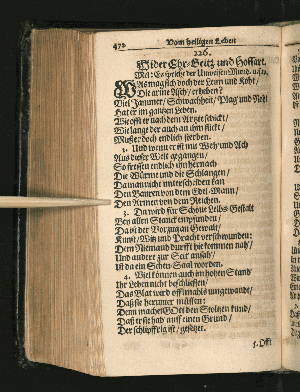 472 Vom heiligen Leben
226.
Wider Ehr-Geitz und Hoffart.
Mel: Es spricht der Unweisen Mund, u.s.w.
Was mag sich doch der Leim und Koht/
Die arme Asch/ erheben?
Viel Jammer/ Schwachheit/ Plag und Noht
Hat er im gantzen Leben.
Wie offt er nach dem Artzt schickt/
Wie lange der auch an ihm flickt/
Muß er doch endlich sterben.
2. Und wenn er ist mit Weh und Ach
Aus dieser Welt gegangen/
So fressen endlich ihn hernach
Die Würme und die Schlangen/
Da man nicht unterscheiden kan
Den Bauren von dem Edel-Mann/
Den Armen von dem Reichen.
3. Da wird für Schöne Leibs-Gestalt
Bey allen Stanck empfunden/
Da ist der Vorzug an Gewalt/
Kunst/ Witz und Pracht verschwunden:
Dem Niemand durfft hie kommen nah/
Und andere zur Seit ansah/
Ist da ein Scheu-Saal worden.
4. Viel können auch im hohen Stand
Ihr Leben nicht beschliessen/
Das Blat wird offtmahls umgewandt/
Daß sie herunter müssen:
Denn machet Gott den Stoltzen kund/
Daß er sie hab auff einen Grund/
Der schlipffrig ist/ gesetzet.
5. Offt